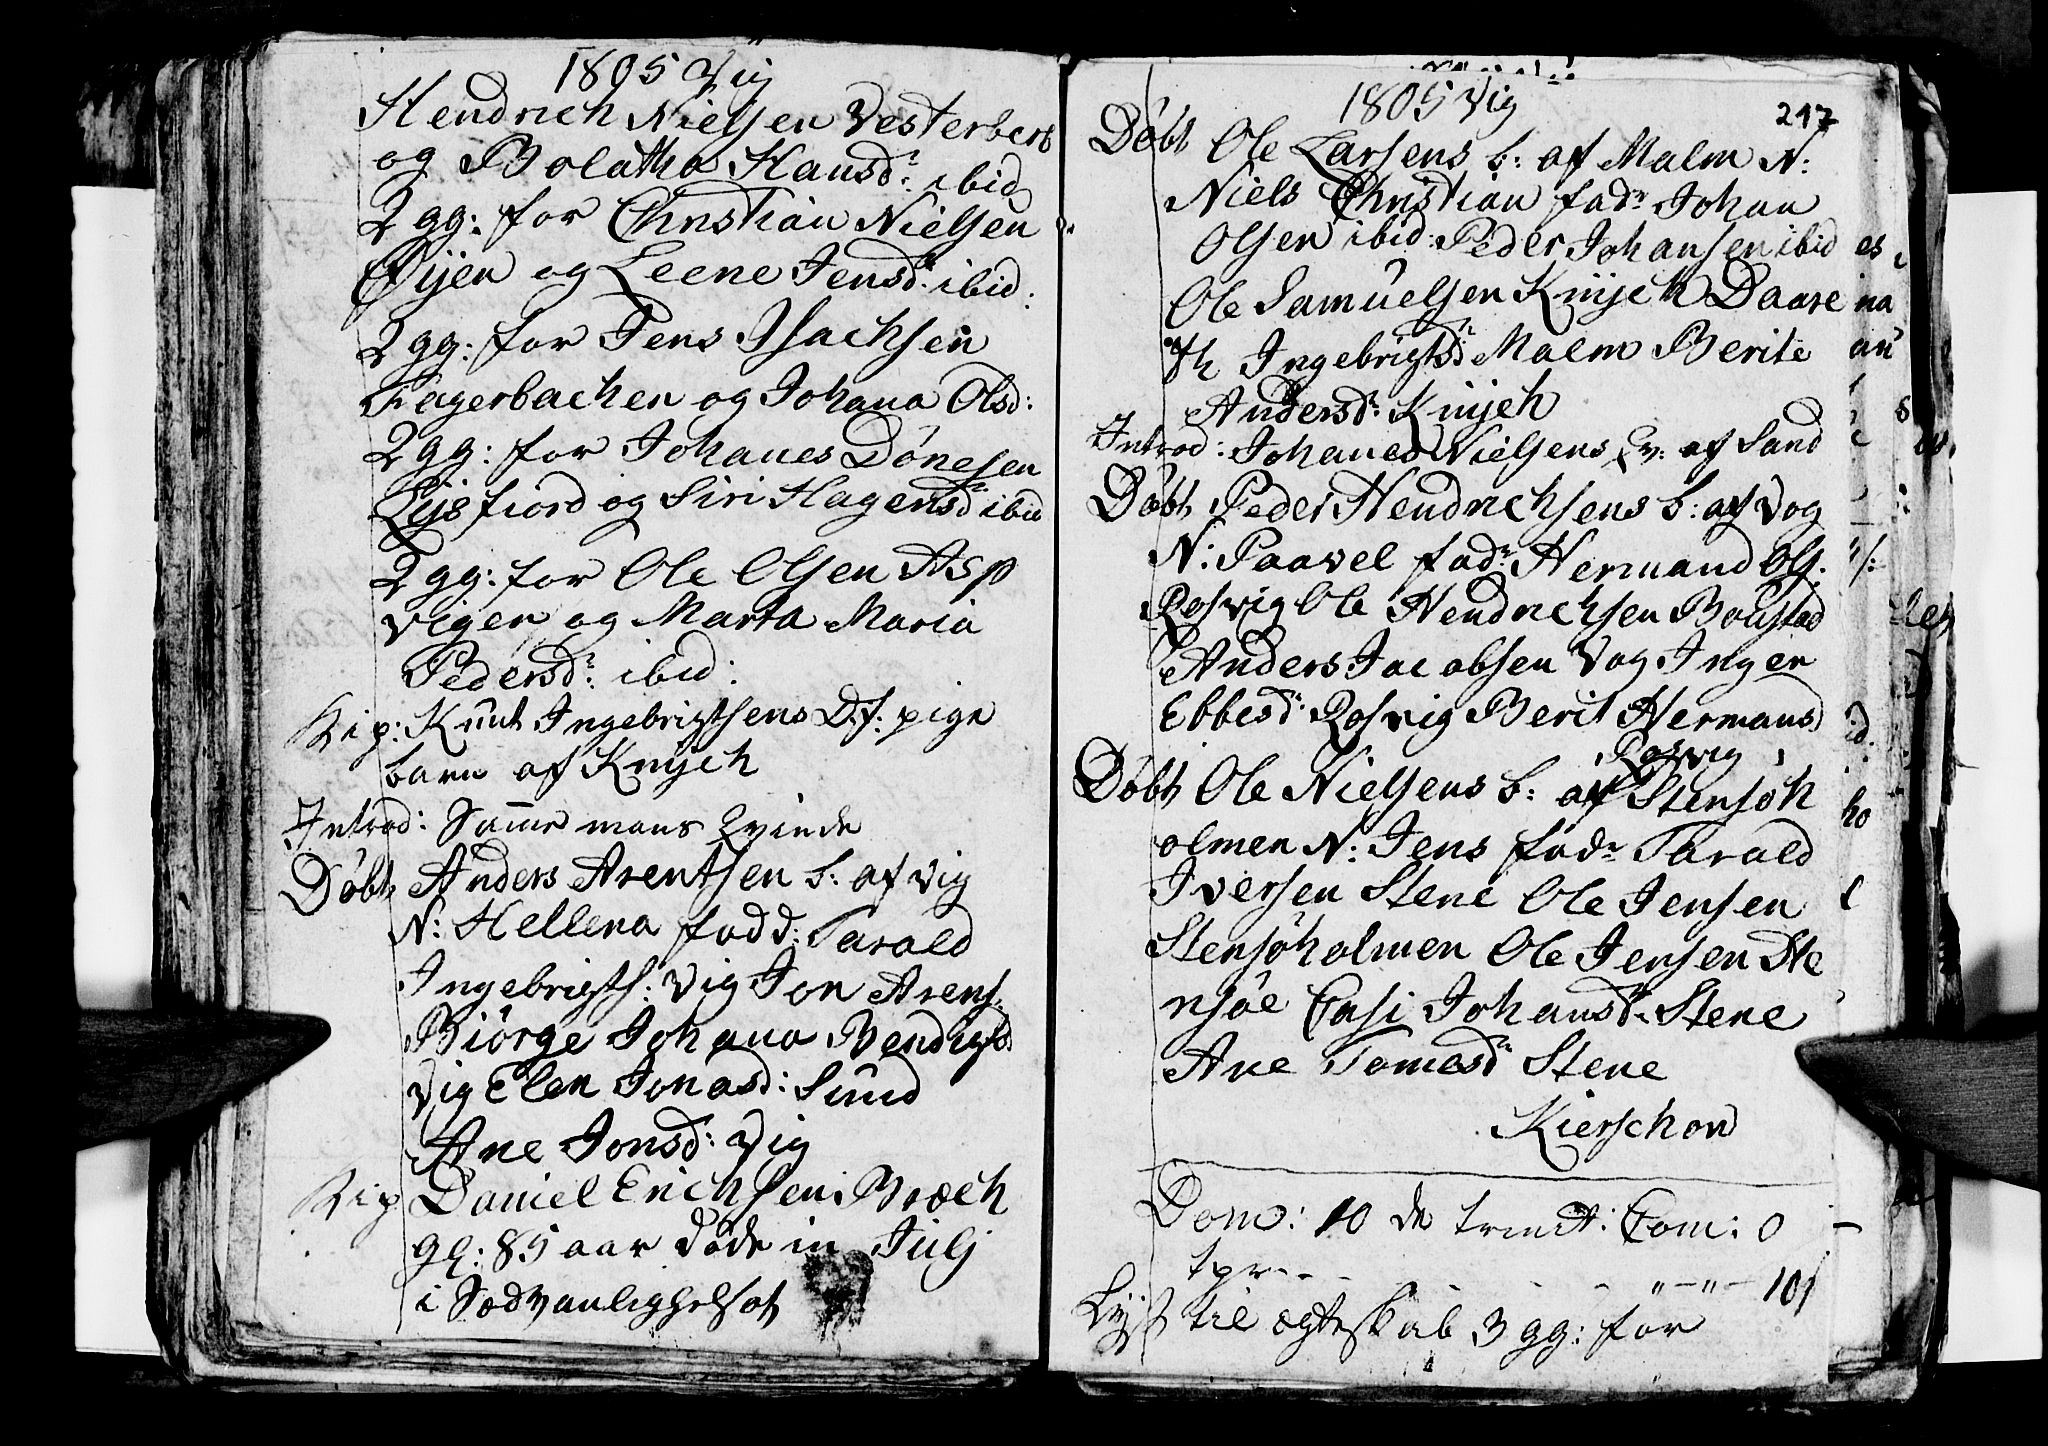 1805 Vig
Hendrich Nielsen Vesterberb
og Bolatha Hansd: ibid
2 gg: for Christian Nielsen
Øijen og Leene Jensd: ibid:
2 gg: for Jens Isachsen
Fagerbachen og Johana Olsd:
2 gg: for Johanes Dönesen
Lijsfiord og Siri Hagensd ibid
2 gg: for Ole Olsen Asp
viger og Marta Maria
Pedersd: ibid:
Knut Ingebrigtsens D.f: pige
barn af Knÿch
Introd: Samme mans Qvinde
Döbt Anders Arentsen b: af Vig
N: Hellena fadd: Tarald
Ingebrigts: Vig Jon Arens:
Biörge Johana Bendigtsd
Vig Elen Jonasd: Sund
Ane Jonsd: Vig
Daniel Erichsen Bræch
gl: 85 aar döde in Julj
i Sædvanlighelsot
1805 Vig
217
Döbt Ole Larsens b: af Malm N:
Niels Christian fadr Johan
Olsen ibid: Peder Johansen ibid
Ole Samuelsen Knÿch Daare
Ingebrigtsd Malm Berite
Andersd: Knÿch
Introd: Johanes Nielsens Qv: af Sand
Döbt Peder Hendrichsens b: af Vog
N: Paavel fadr Hermand Ols:
Rosvig Ole Hendrichsen Bolstad
Anders Jacobsen Vog Inger
Ebbesd: Rosvig Berit Hermansd
Rosvig
Döbt Ole Nielsens b: af Stensöh
olmen N: Jens fadr Tarald
Iversen Stene Ole Jensen
Stensöholmen Ole Jensen Ste
nsöe Casi Johansd: Stene
Ane Tomesd Stene
Kierschow
Dom: 10 de trinit: Com: 0
tpr - - - - - " - " - 101
Lyst til ægteskab 3 gg: for